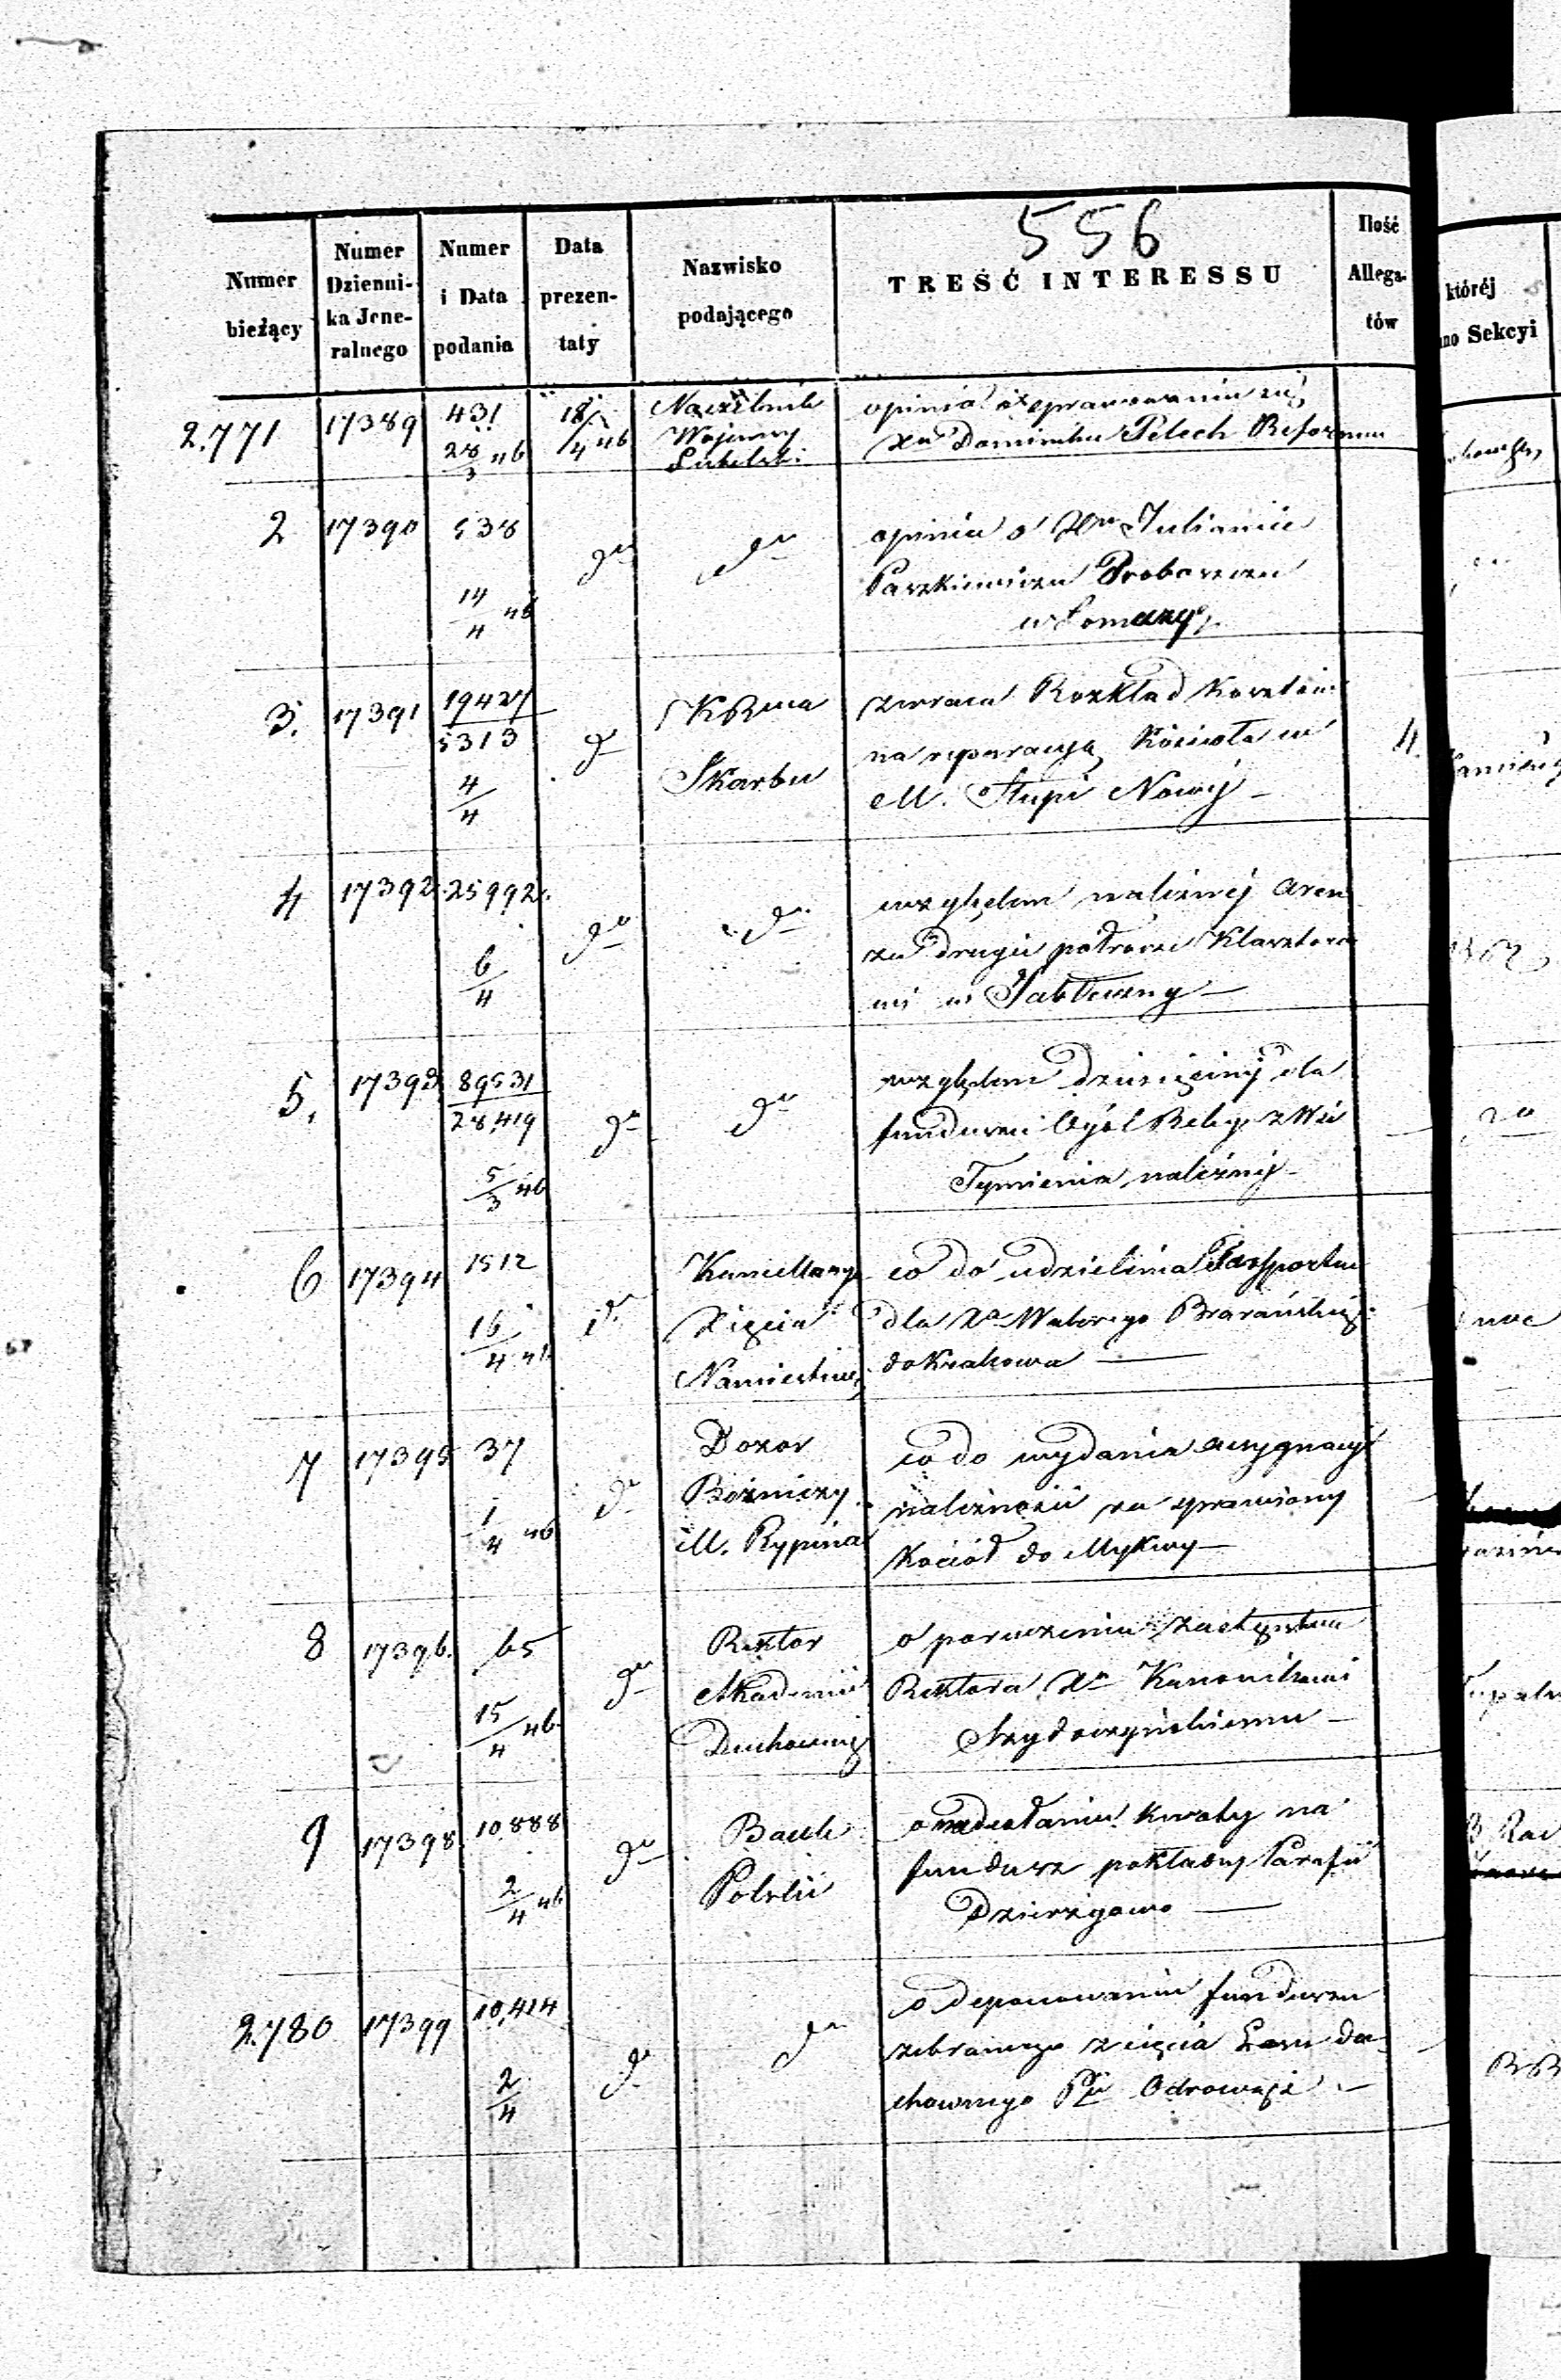 556
Numer bieżący
Numer Dzienni-ka Jene-ralnego
Numer i Data podania
Data prezen-taty
Nazwisko podającego
TREŚĆ INTERESSU
Ilość Allega-tów
której
no Sekcyi
2.771 17389 431 28/3 46 18/4 46 Naczelnik Wojenny Lubelski
opinia o sprawowaniu się
Xa Dominika Pelech Reforma
2 17390 538 14/4 46 do do
opinia o Xu Julianie
Paszkiewiczu Proboszczu
w Łomazy
3. 17391 19427/5313 4/4 do KRzna Skarbu
zwraca Rozkład Kosztów
na reparacyą Kościoła w
M. Słupi Nowéj – 4.
4 17392 25992. 6/4 do do
względem należnéj Aren
za drugie półrocze Klasztoro
wi w Jabłeczny –
5. 17393 89531/28,419 5/3 46 do do
względem dziesięciny dla
funduszu Ogól Relig. z Wsi
Tymienia należnéj –
6 17394 1512 16/4 46 do Kancellarya Xięcia Namiestnika
co do udzielenia Passportu
dla Xa Walerego Barańskiego
do Krakowa –
7 17395 37 1/4 46 do Dozor Bożniczy M. Rypina
co do wydania assygnacyi
należności za sprawiony
Kocioł do Mykwy –
8 17396. 65 15/4 46 do Rektor Akademii Duchownéj
o poruczeniu zastępstwa
Rektora Xu Kanonikowi
9 17398 10,888 2/4 46 do Bank Polski
o nadesłaniu kwoty na
fundusz pokładny Parafii
Dzierzgowo –
2.780 17399 10,414 2/4 do do
o deponowaniu funduszu
zebranego z cięcia Lasu du
chownego Pfii Odrowąż –